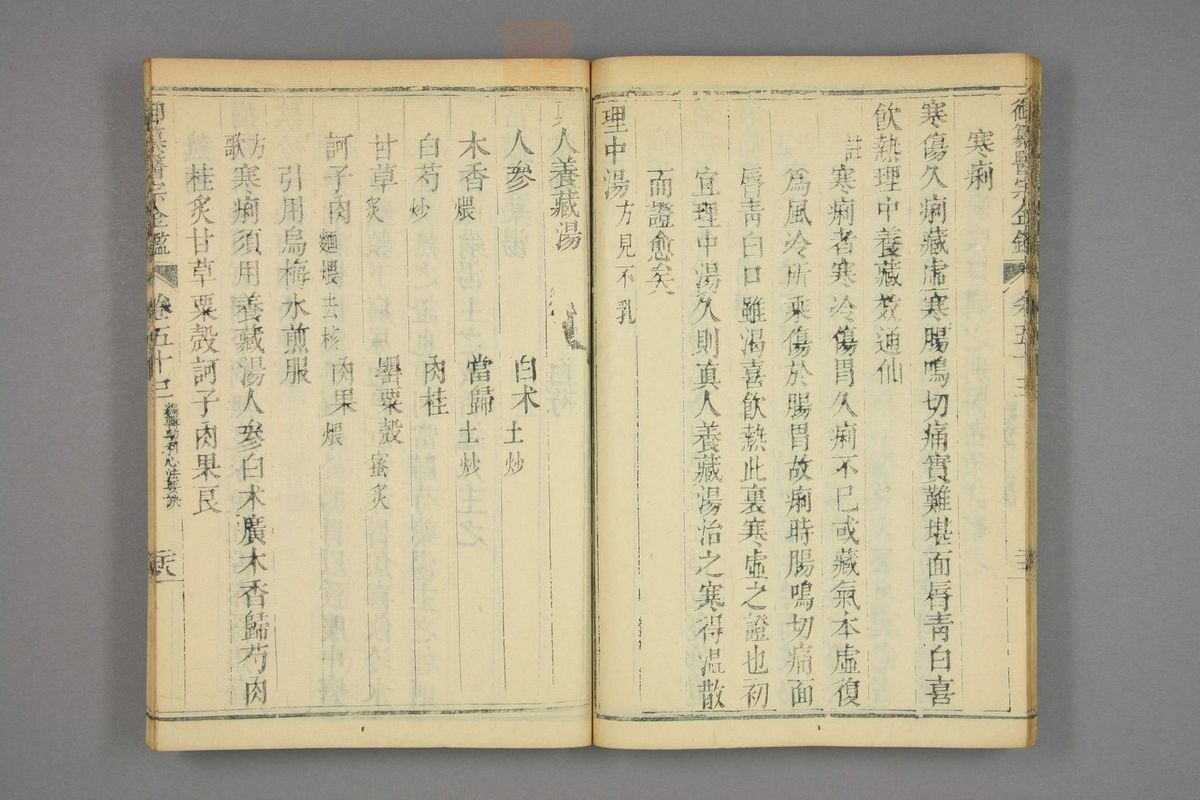 御纂醫宗金鑑
寒痢
寒傷久痢藏虛寒腸鳴切痛實難堪面唇青白喜
飲熱理中養藏效通仙
註
寒痢者寒冷傷胃久痢不已或藏氣本虛復
爲風冷所乘傷於腸胃故痢時腸鳴切痛面
唇青白口雖渴喜飲熱此裏寒虛之證也初
宜理中湯久則真人養藏湯治之寒得溫散
而證愈矣
理中湯 方見不乳
人養藏湯
人參 白朮 土炒
木香 煨 當歸 土炒
白芍 炒 肉桂
甘草 炙 罌粟殼 蜜炙
訶子肉 麵煨去核 肉果 煨
引用烏梅水煎服
方歌
寒痢須用養藏湯人參白朮廣木香歸芍肉
桂炙甘草粟殼訶子肉果良
御纂醫宗金鑑 卷五十 幼科心法要訣